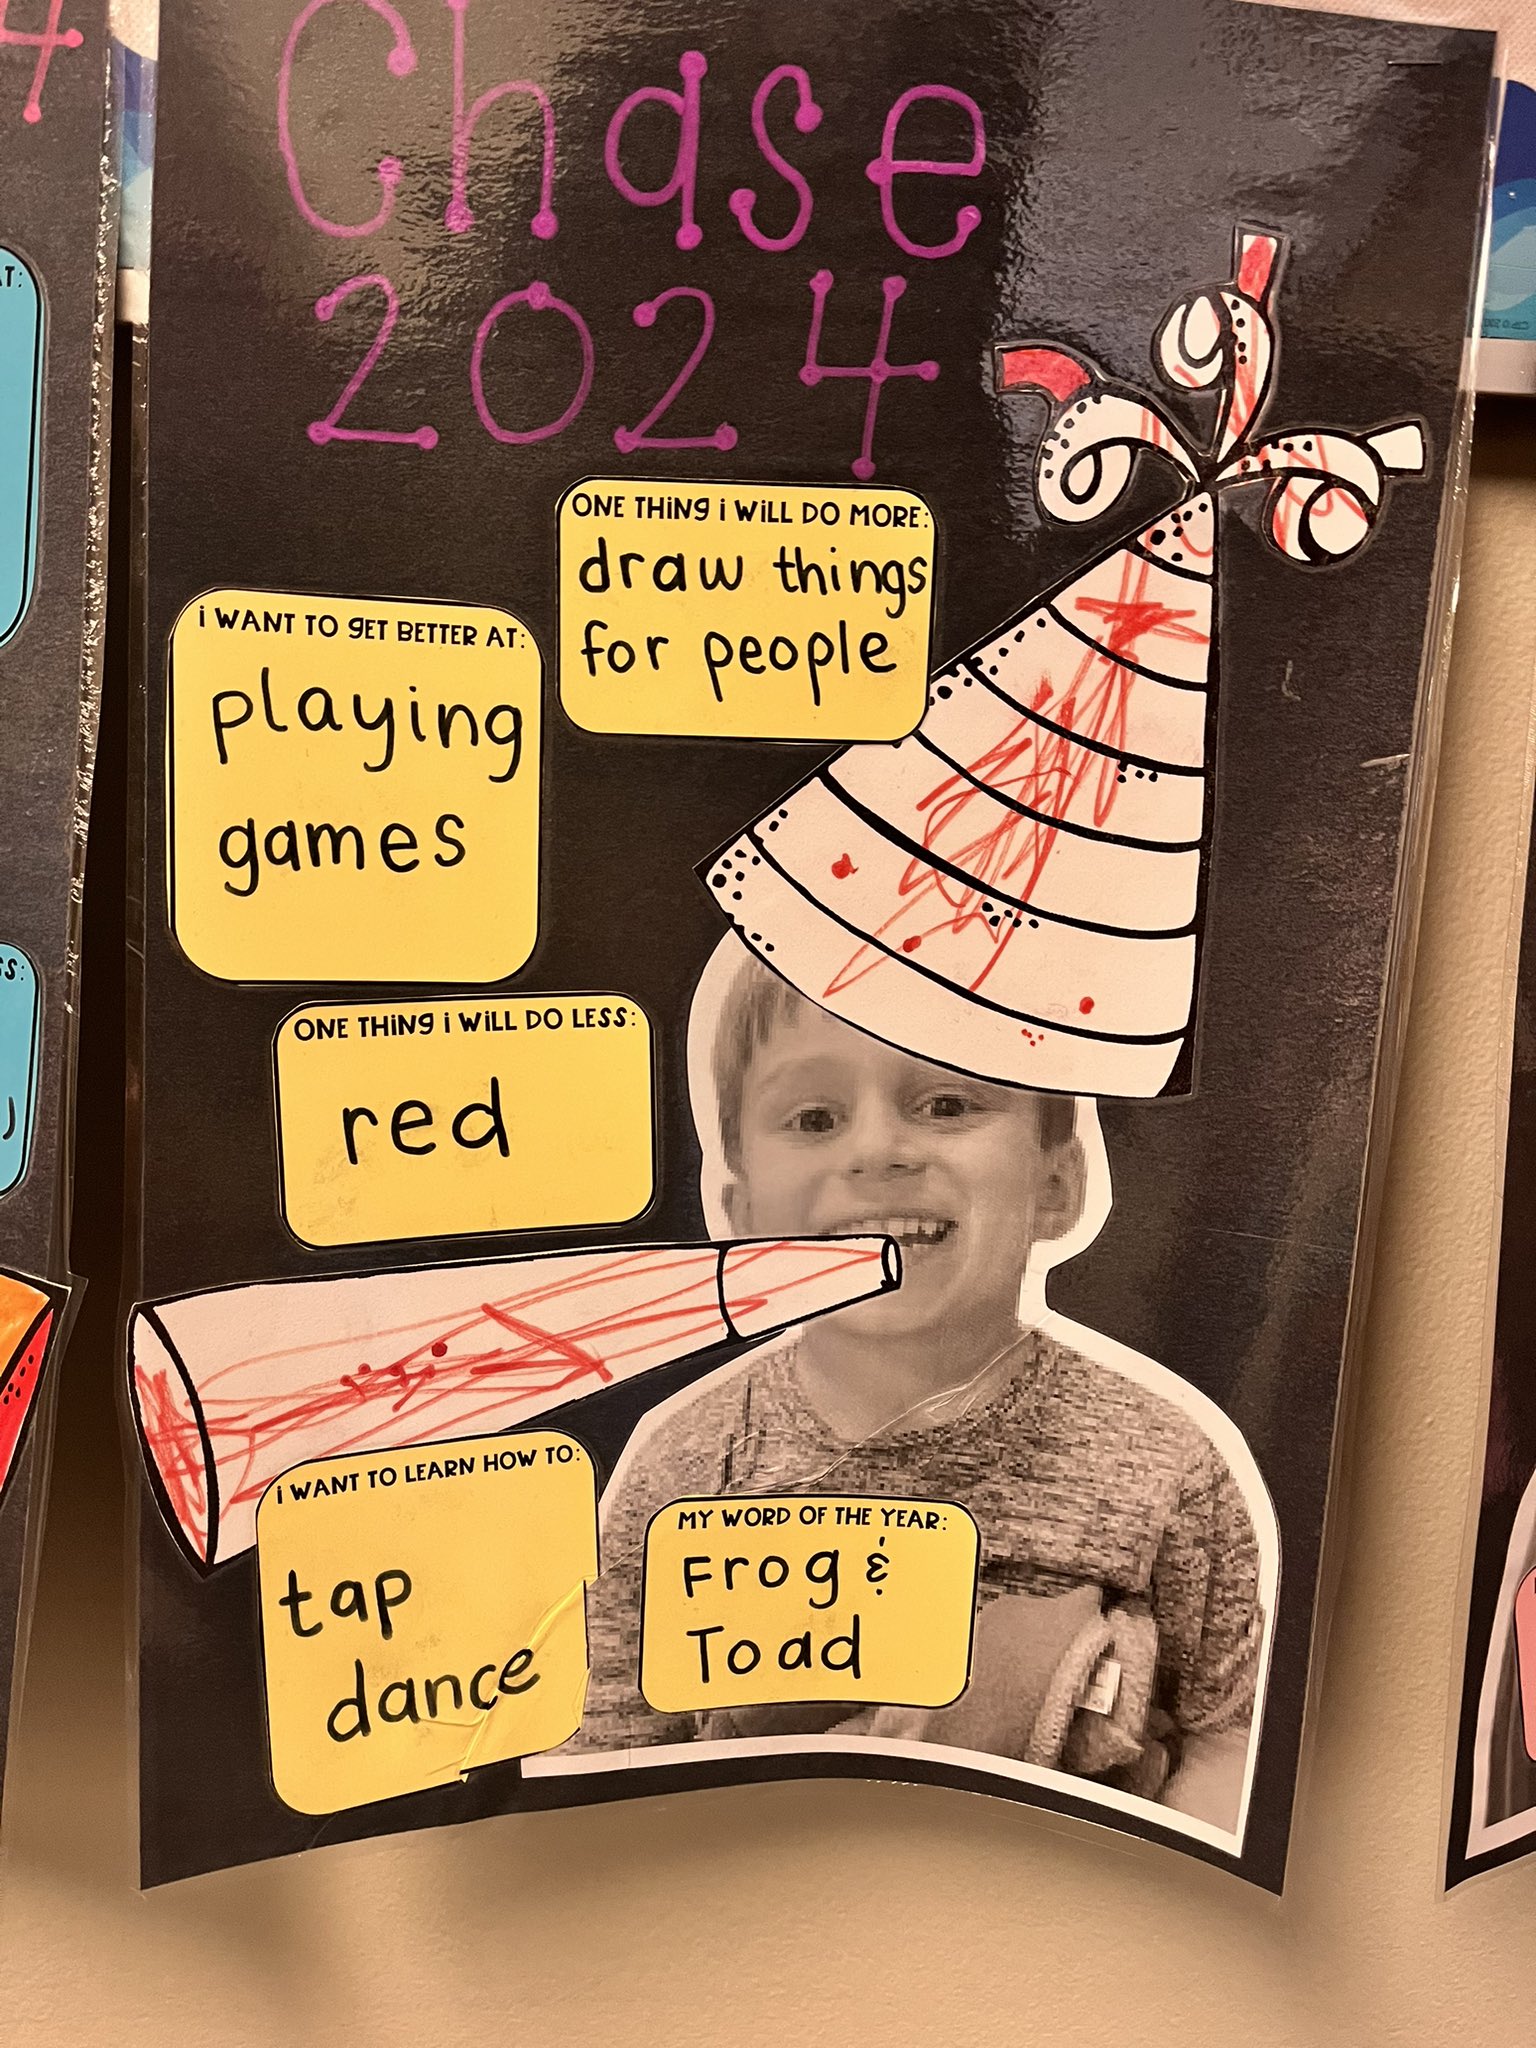 Chase
2024
ONE THiNg i WiLL DO MORE:
draw things
for people
i WANT TO gET BETTER AT:
playing
games
ONE THiNg i WiLL DO LESS:
red
i WANT TO LEARN HOW TO:
tap
dance
MY WORD OF THE YEAR:
Frog &
Toad
4
AT:
SS: